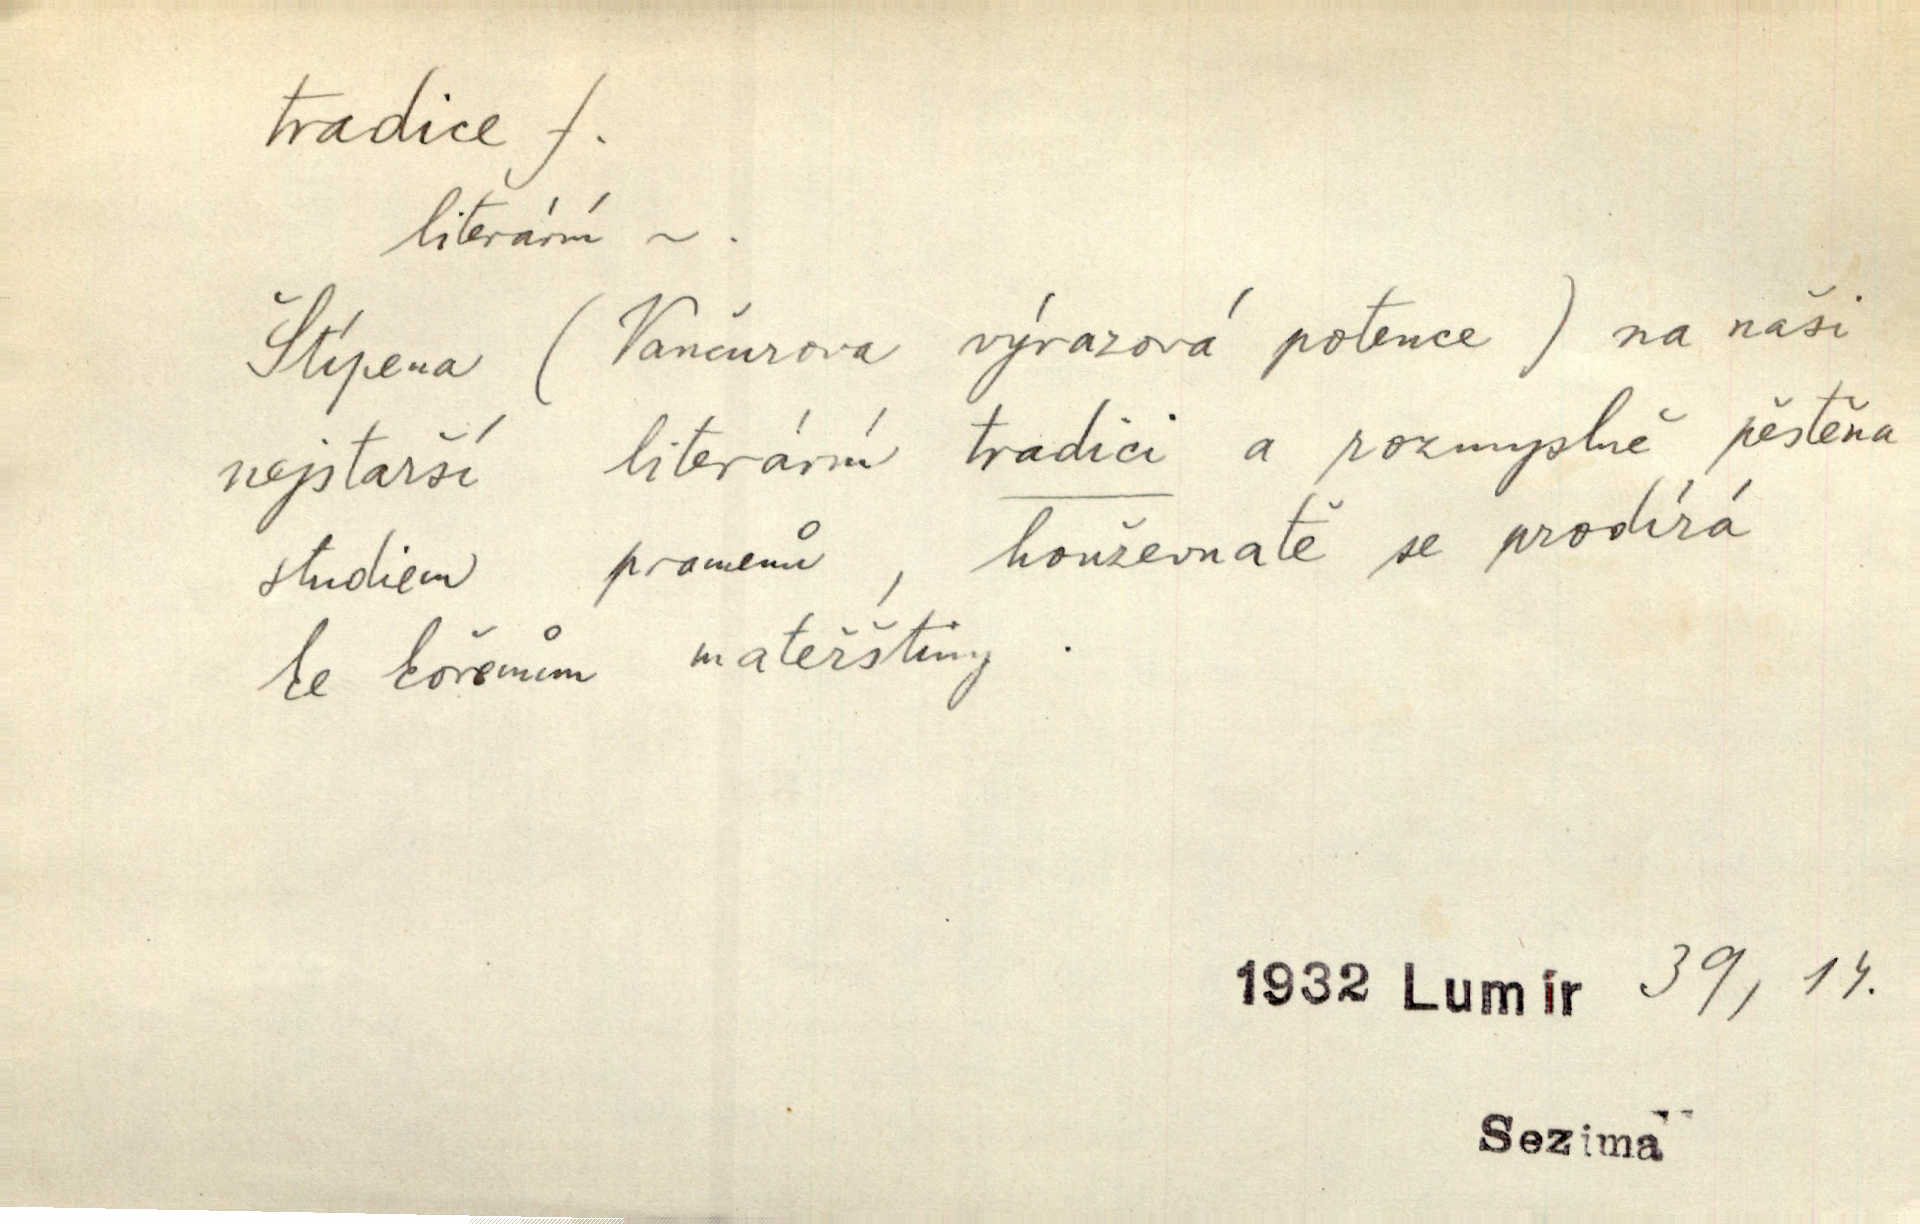 tradice f.
literární ~.
Štípena (Vančurova výrazová potence) na naši
nejstarší literární tradici a rozmyslně pěstěna
studiem pramenů, houževnatě se prodírá
ke kořenům mateřštiny.
1932 Lumír 39, 14.
Sezima